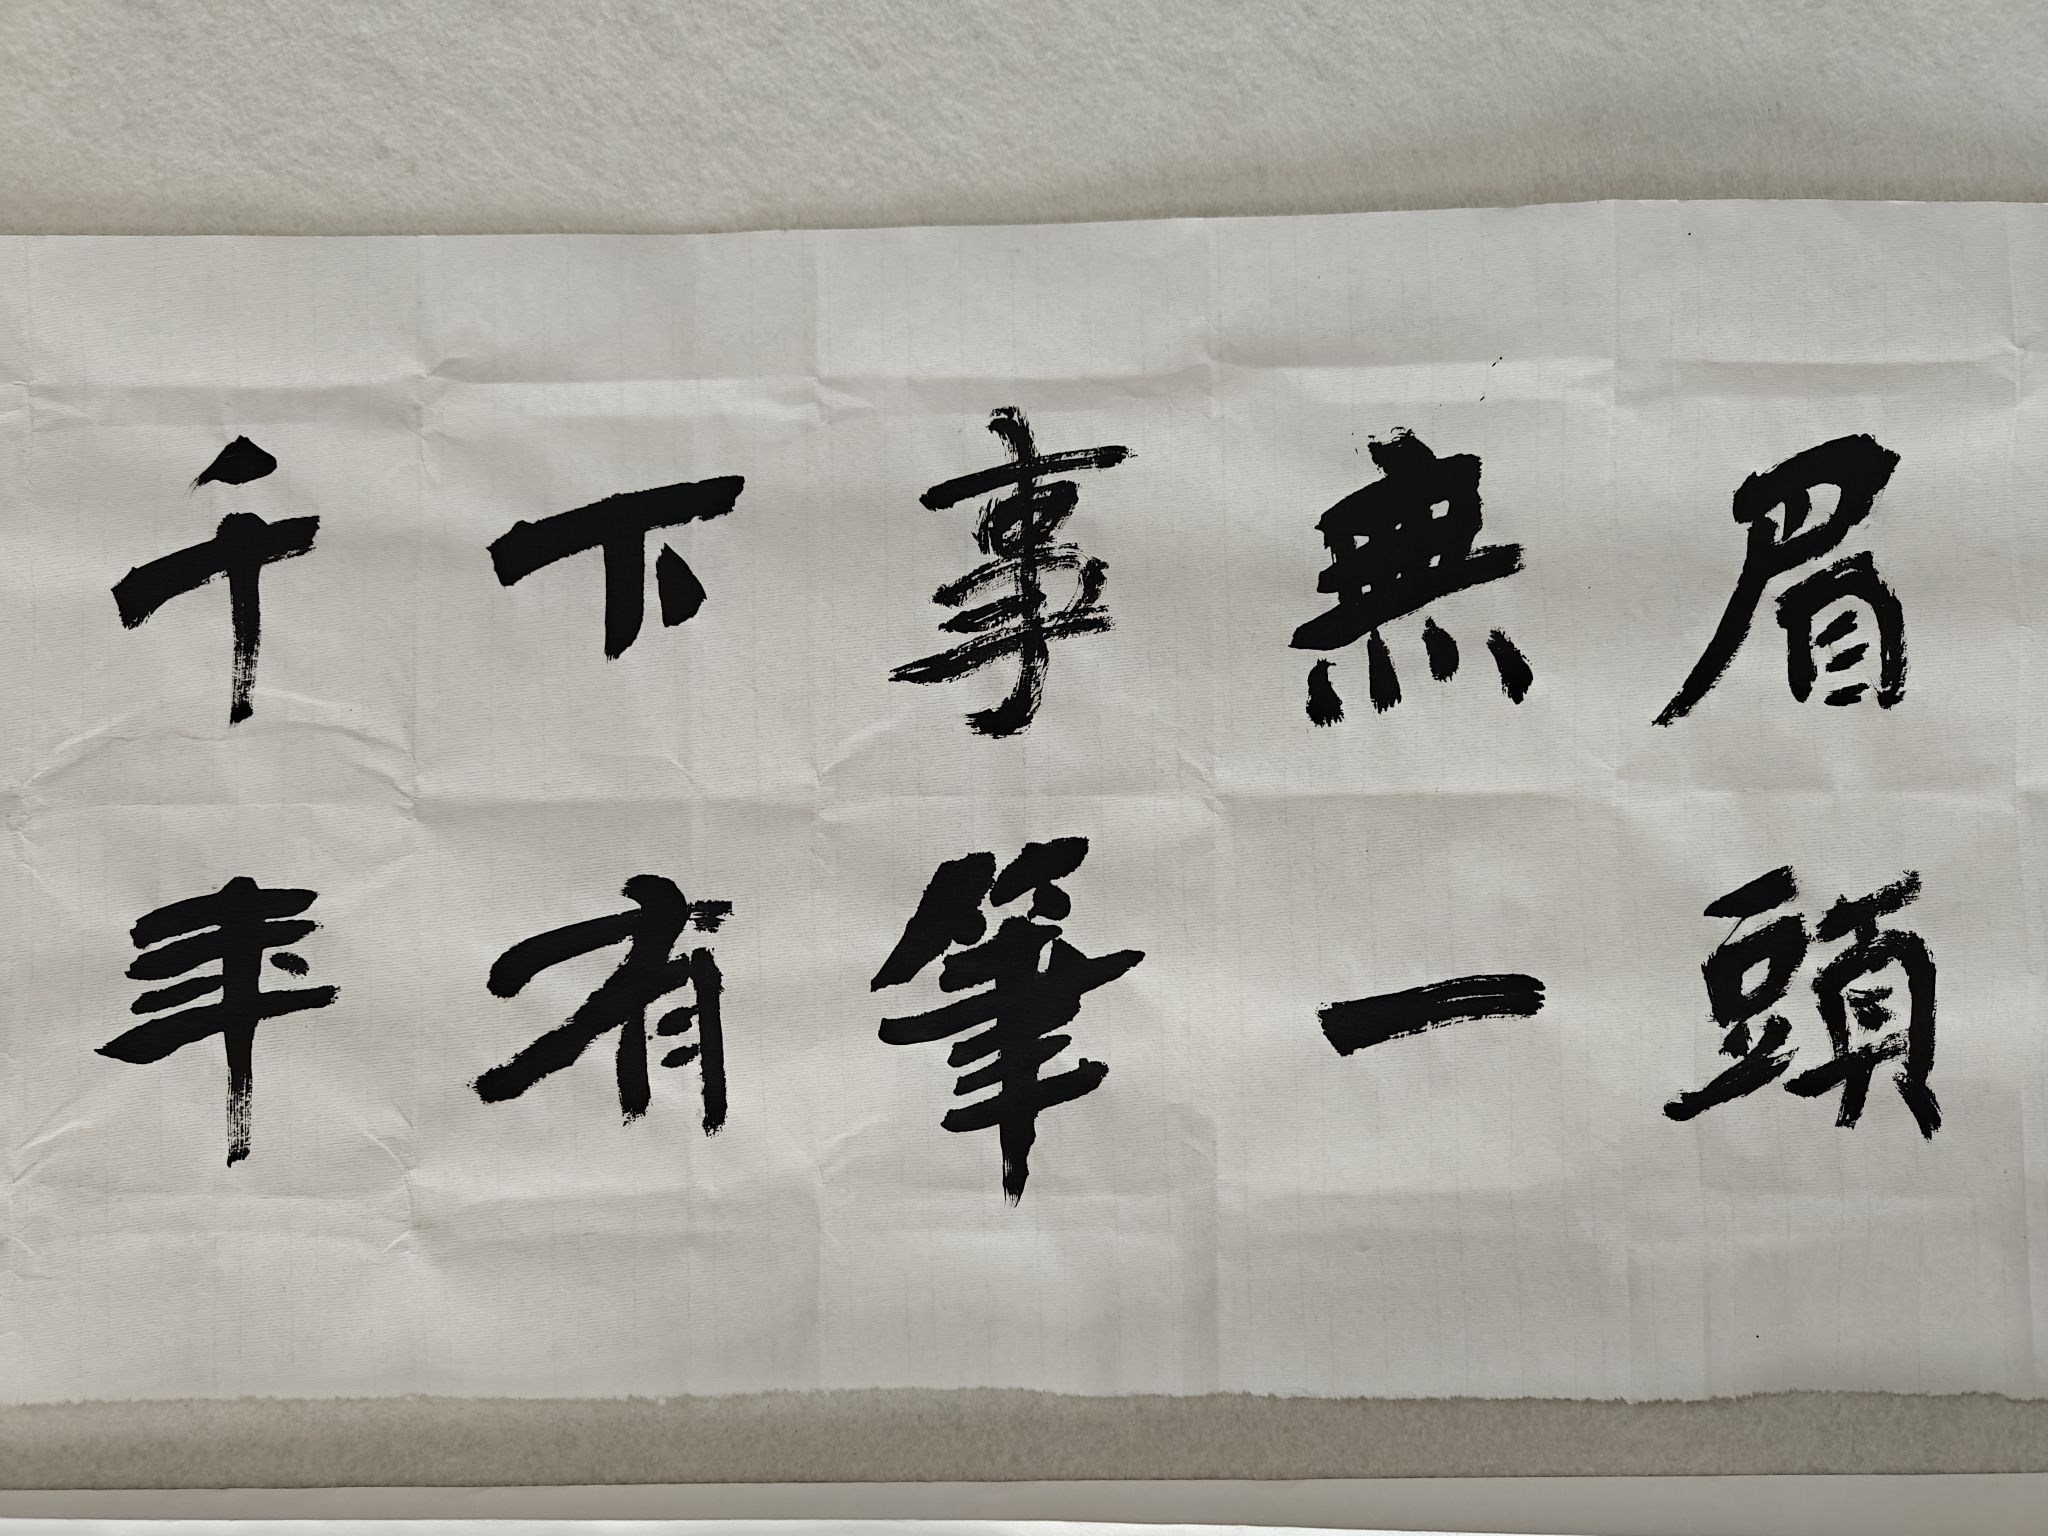 眉頭
無一
事筆
下有
千年